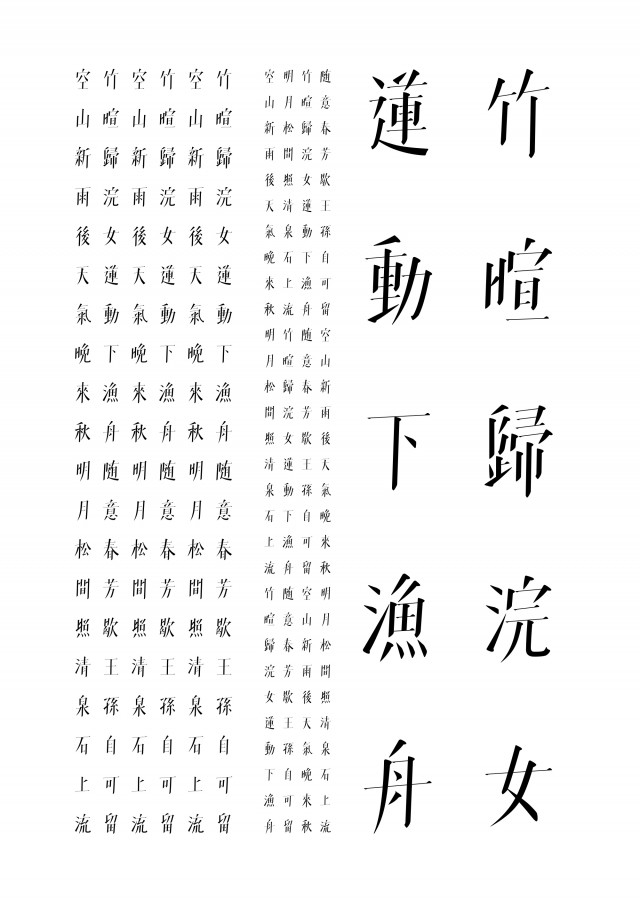 竹暄歸浣女
蓮動下漁舟
随意春芳歇王孫自可留空山新雨後天氣晚來秋明月松間照清泉石上流
竹暄歸浣女蓮動下漁舟随意春芳歇王孫自可留空山新雨後天氣晚來秋
明月松間照清泉石上流竹暄歸浣女蓮動下漁舟随意春芳歇王孫自可留
空山新雨後天氣晚來秋明月松間照清泉石上流竹暄歸浣女蓮動下漁舟
竹暄歸浣女蓮動下漁舟随意春芳歇王孫自可留
空山新雨後天氣晚來秋明月松間照清泉石上流
竹暄歸浣女蓮動下漁舟随意春芳歇王孫自可留
空山新雨後天氣晚來秋明月松間照清泉石上流
竹暄歸浣女蓮動下漁舟随意春芳歇王孫自可留
空山新雨後天氣晚來秋明月松間照清泉石上流